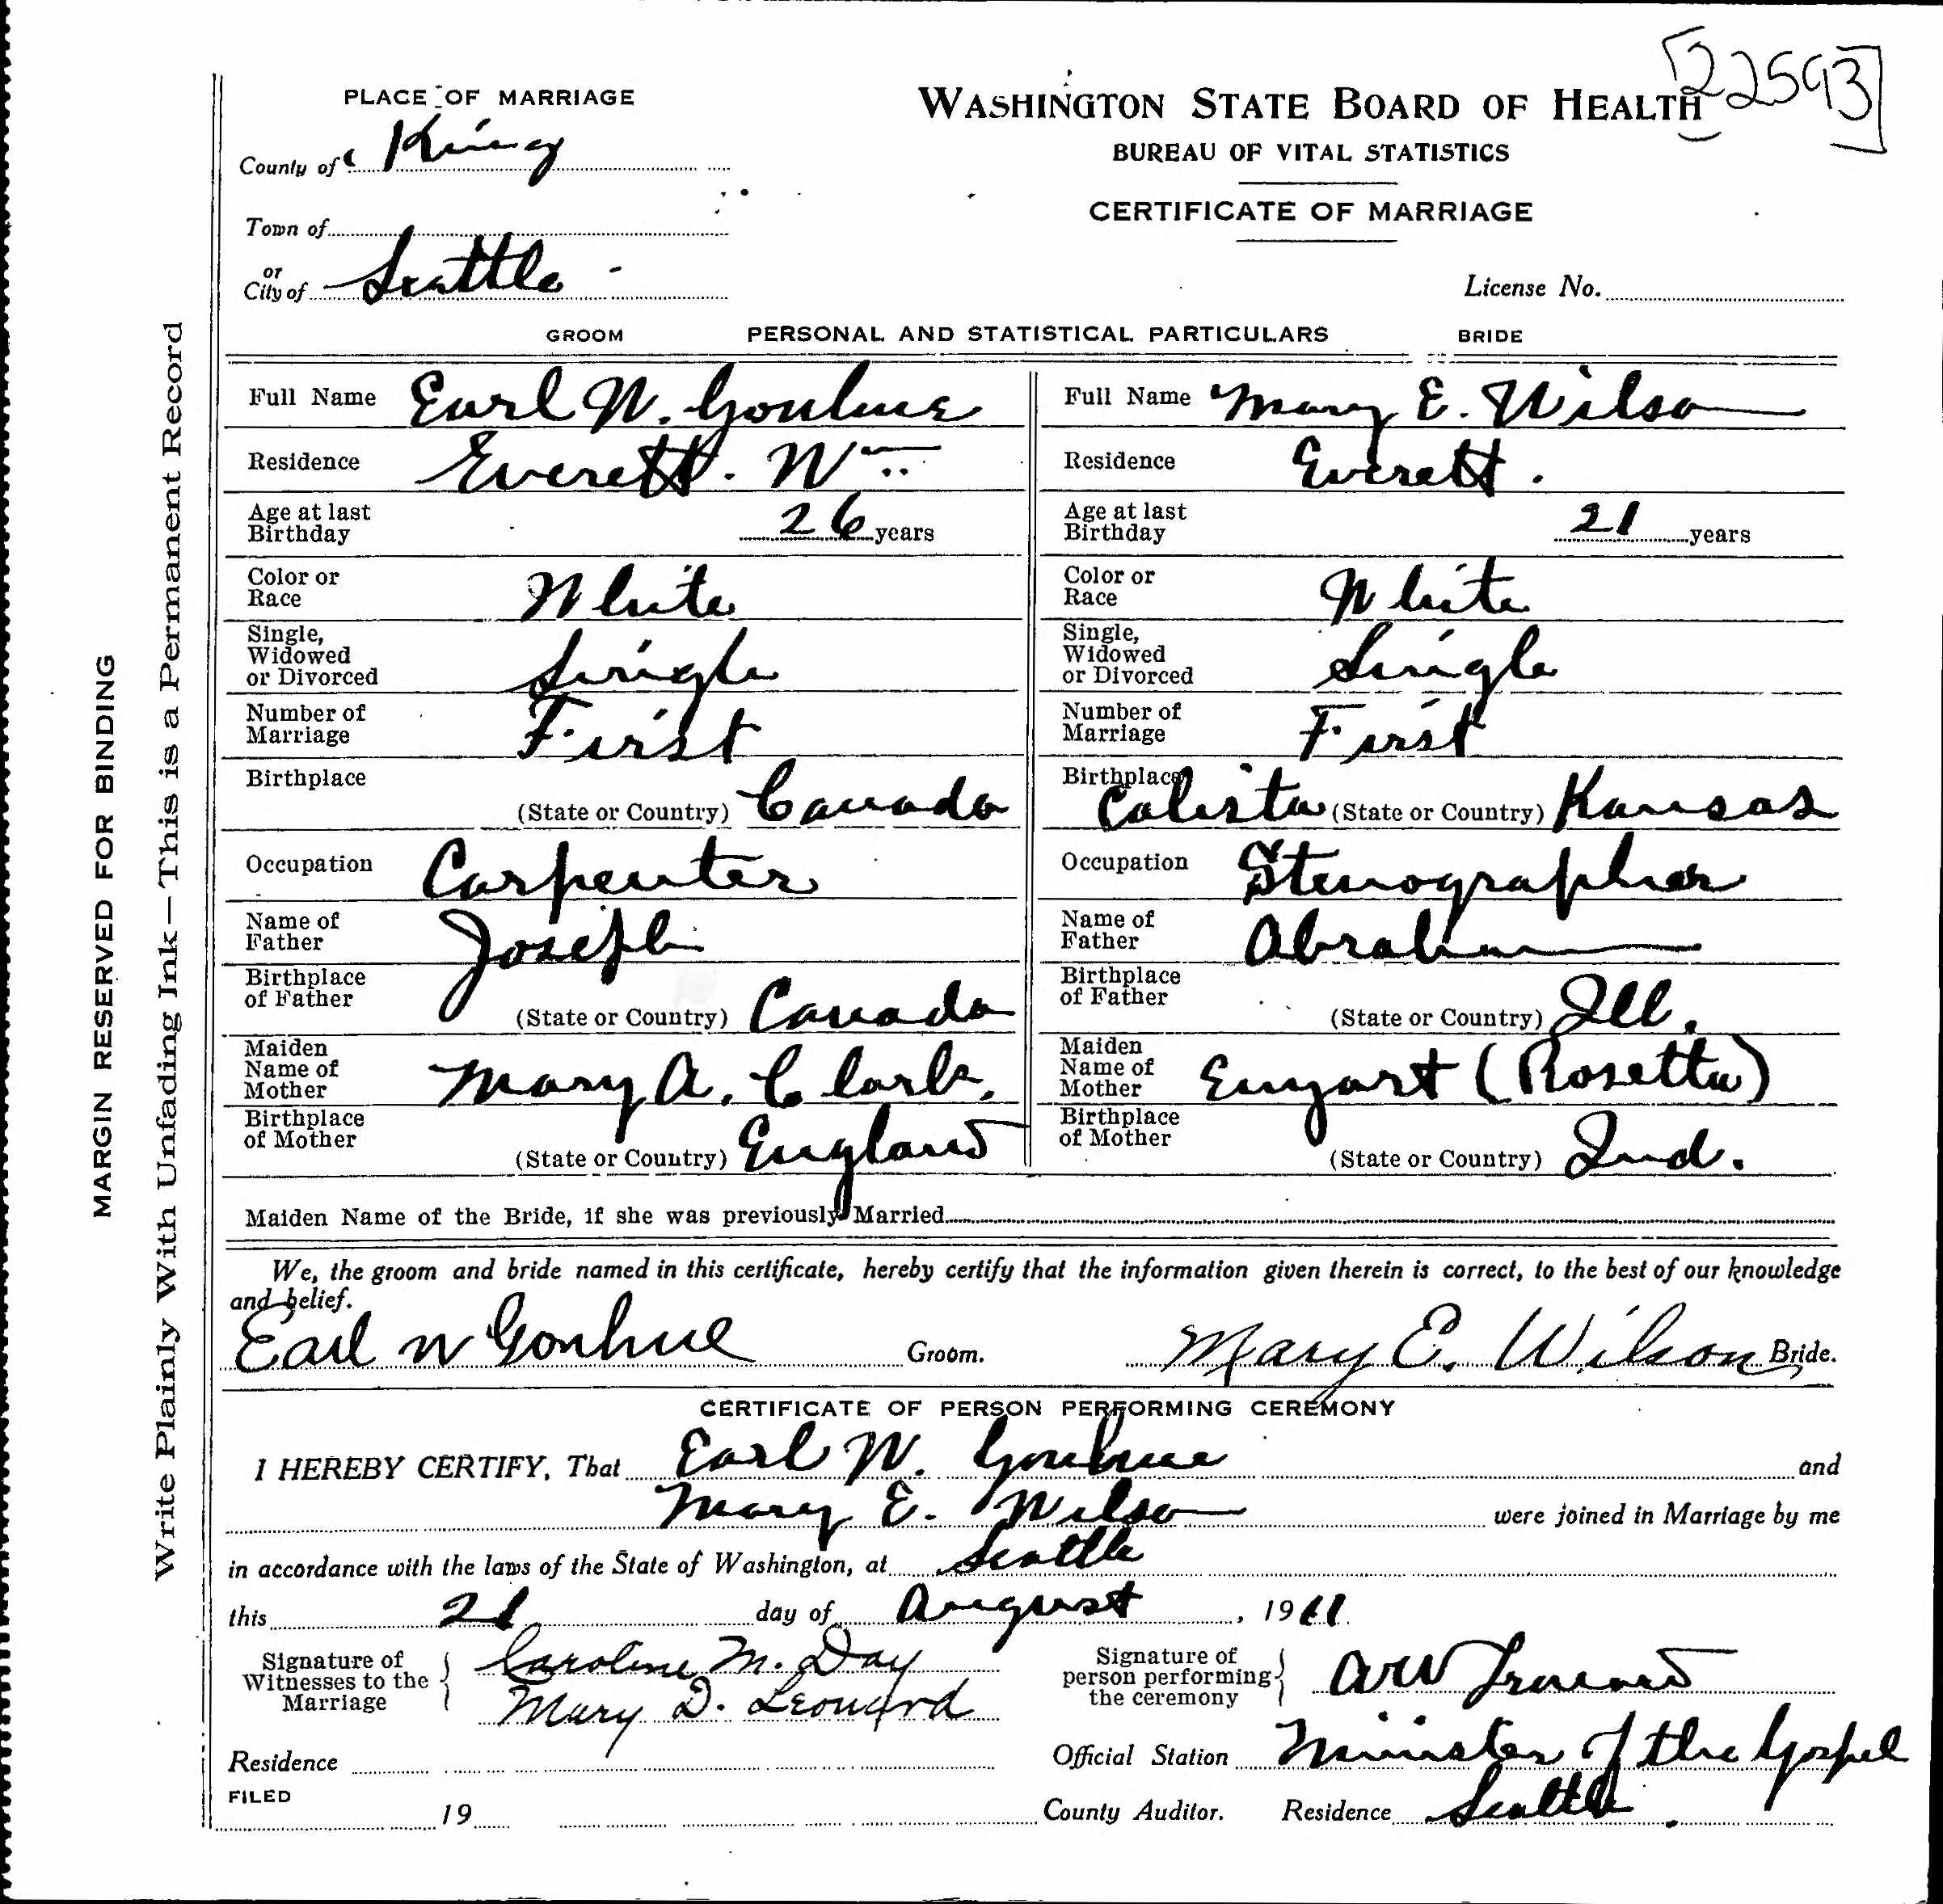 [22593]
PLACE OF MARRIAGE
County of King
Town of
or
City of Seattle
WASHINGTON STATE BOARD OF HEALTH
BUREAU OF VITAL STATISTICS
CERTIFICATE OF MARRIAGE
License No.
GROOM PERSONAL AND STATISTICAL PARTICULARS BRIDE
Full Name Earl W. Gonhue
Full Name Mary E. Wilson
Residence Everett. Wn.
Residence Everett.
Age at last Birthday 26 years
Age at last Birthday 21 years
Color or Race White
Color or Race White
Single, Widowed or Divorced Single
Single, Widowed or Divorced Single
Number of Marriage First
Number of Marriage First
Birthplace (State or Country) Canada
Birthplace Calista (State or Country) Kansas
Occupation Carpenter
Occupation Stenographer
Name of Father Joseph
Name of Father Abraham
Birthplace of Father (State or Country) Canada
Birthplace of Father (State or Country) Ill.
Maiden Name of Mother Mary A. Clark.
Maiden Name of Mother Enyart (Rosetta)
Birthplace of Mother (State or Country) England
Birthplace of Mother (State or Country) Ind.
Maiden Name of the Bride, if she was previously Married
We, the groom and bride named in this certificate, hereby certify that the information given therein is correct, to the best of our knowledge
and belief.
Earl W Gonhue Groom. Mary E. Wilson Bride.
CERTIFICATE OF PERSON PERFORMING CEREMONY
I HEREBY CERTIFY, That Earl W. Gonhue and
Mary E. Wilson were joined in Marriage by me
in accordance with the laws of the State of Washington, at Seattle
this 21 day of August, 1911
Signature of Witnesses to the Marriage
Caroline M. Day
Mary D. Leonard
Signature of person performing the ceremony A W
Residence
Official Station Minister of the Gospel
FILED
19
County Auditor. Residence Seattle
MARGIN RESERVED FOR BINDING
Write Plainly With Unfading Ink—This is a Permanent Record